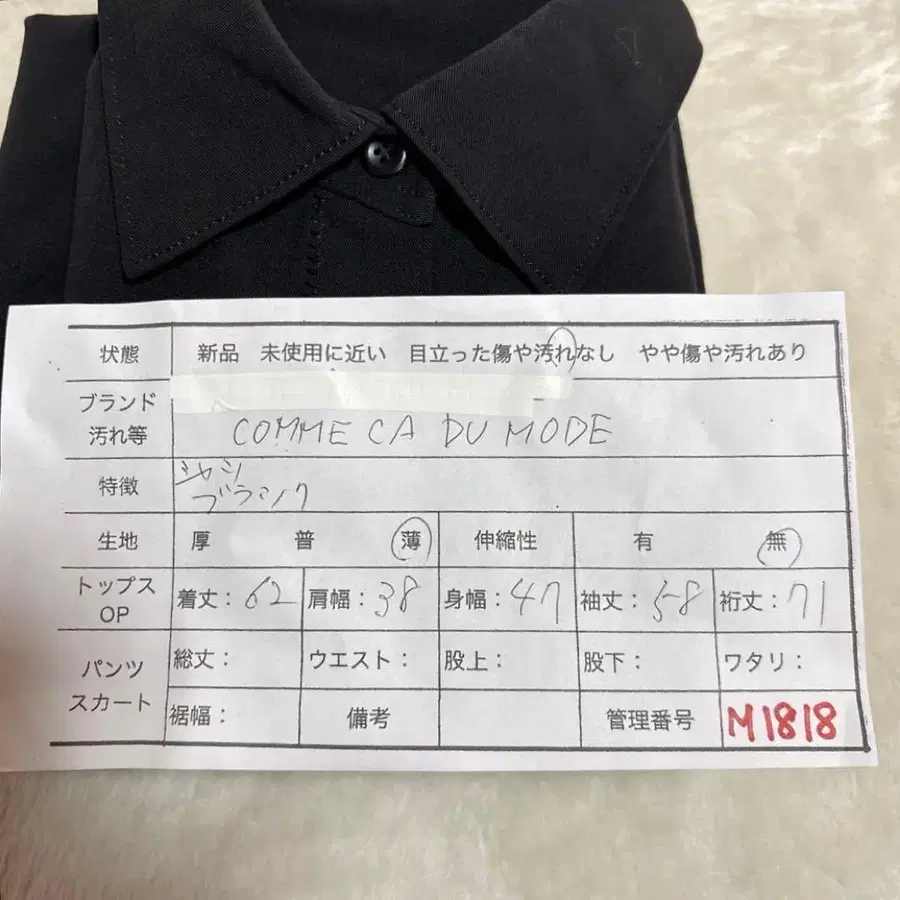 状態 新品 未使用に近い 目立った傷や汚れなし やや傷や汚れあり
ブランド
汚れ等
COMME CA DU MODE
特徴
シャツ
ブラック
生地 厚 普 薄 伸縮性 有 無
トップス
OP
着丈:62 肩幅:38 身幅:47 袖丈:58 裄丈:71
パンツ
スカート
総丈: ウエスト: 股上: 股下: ワタリ:
裾幅: 備考 管理番号 M1818